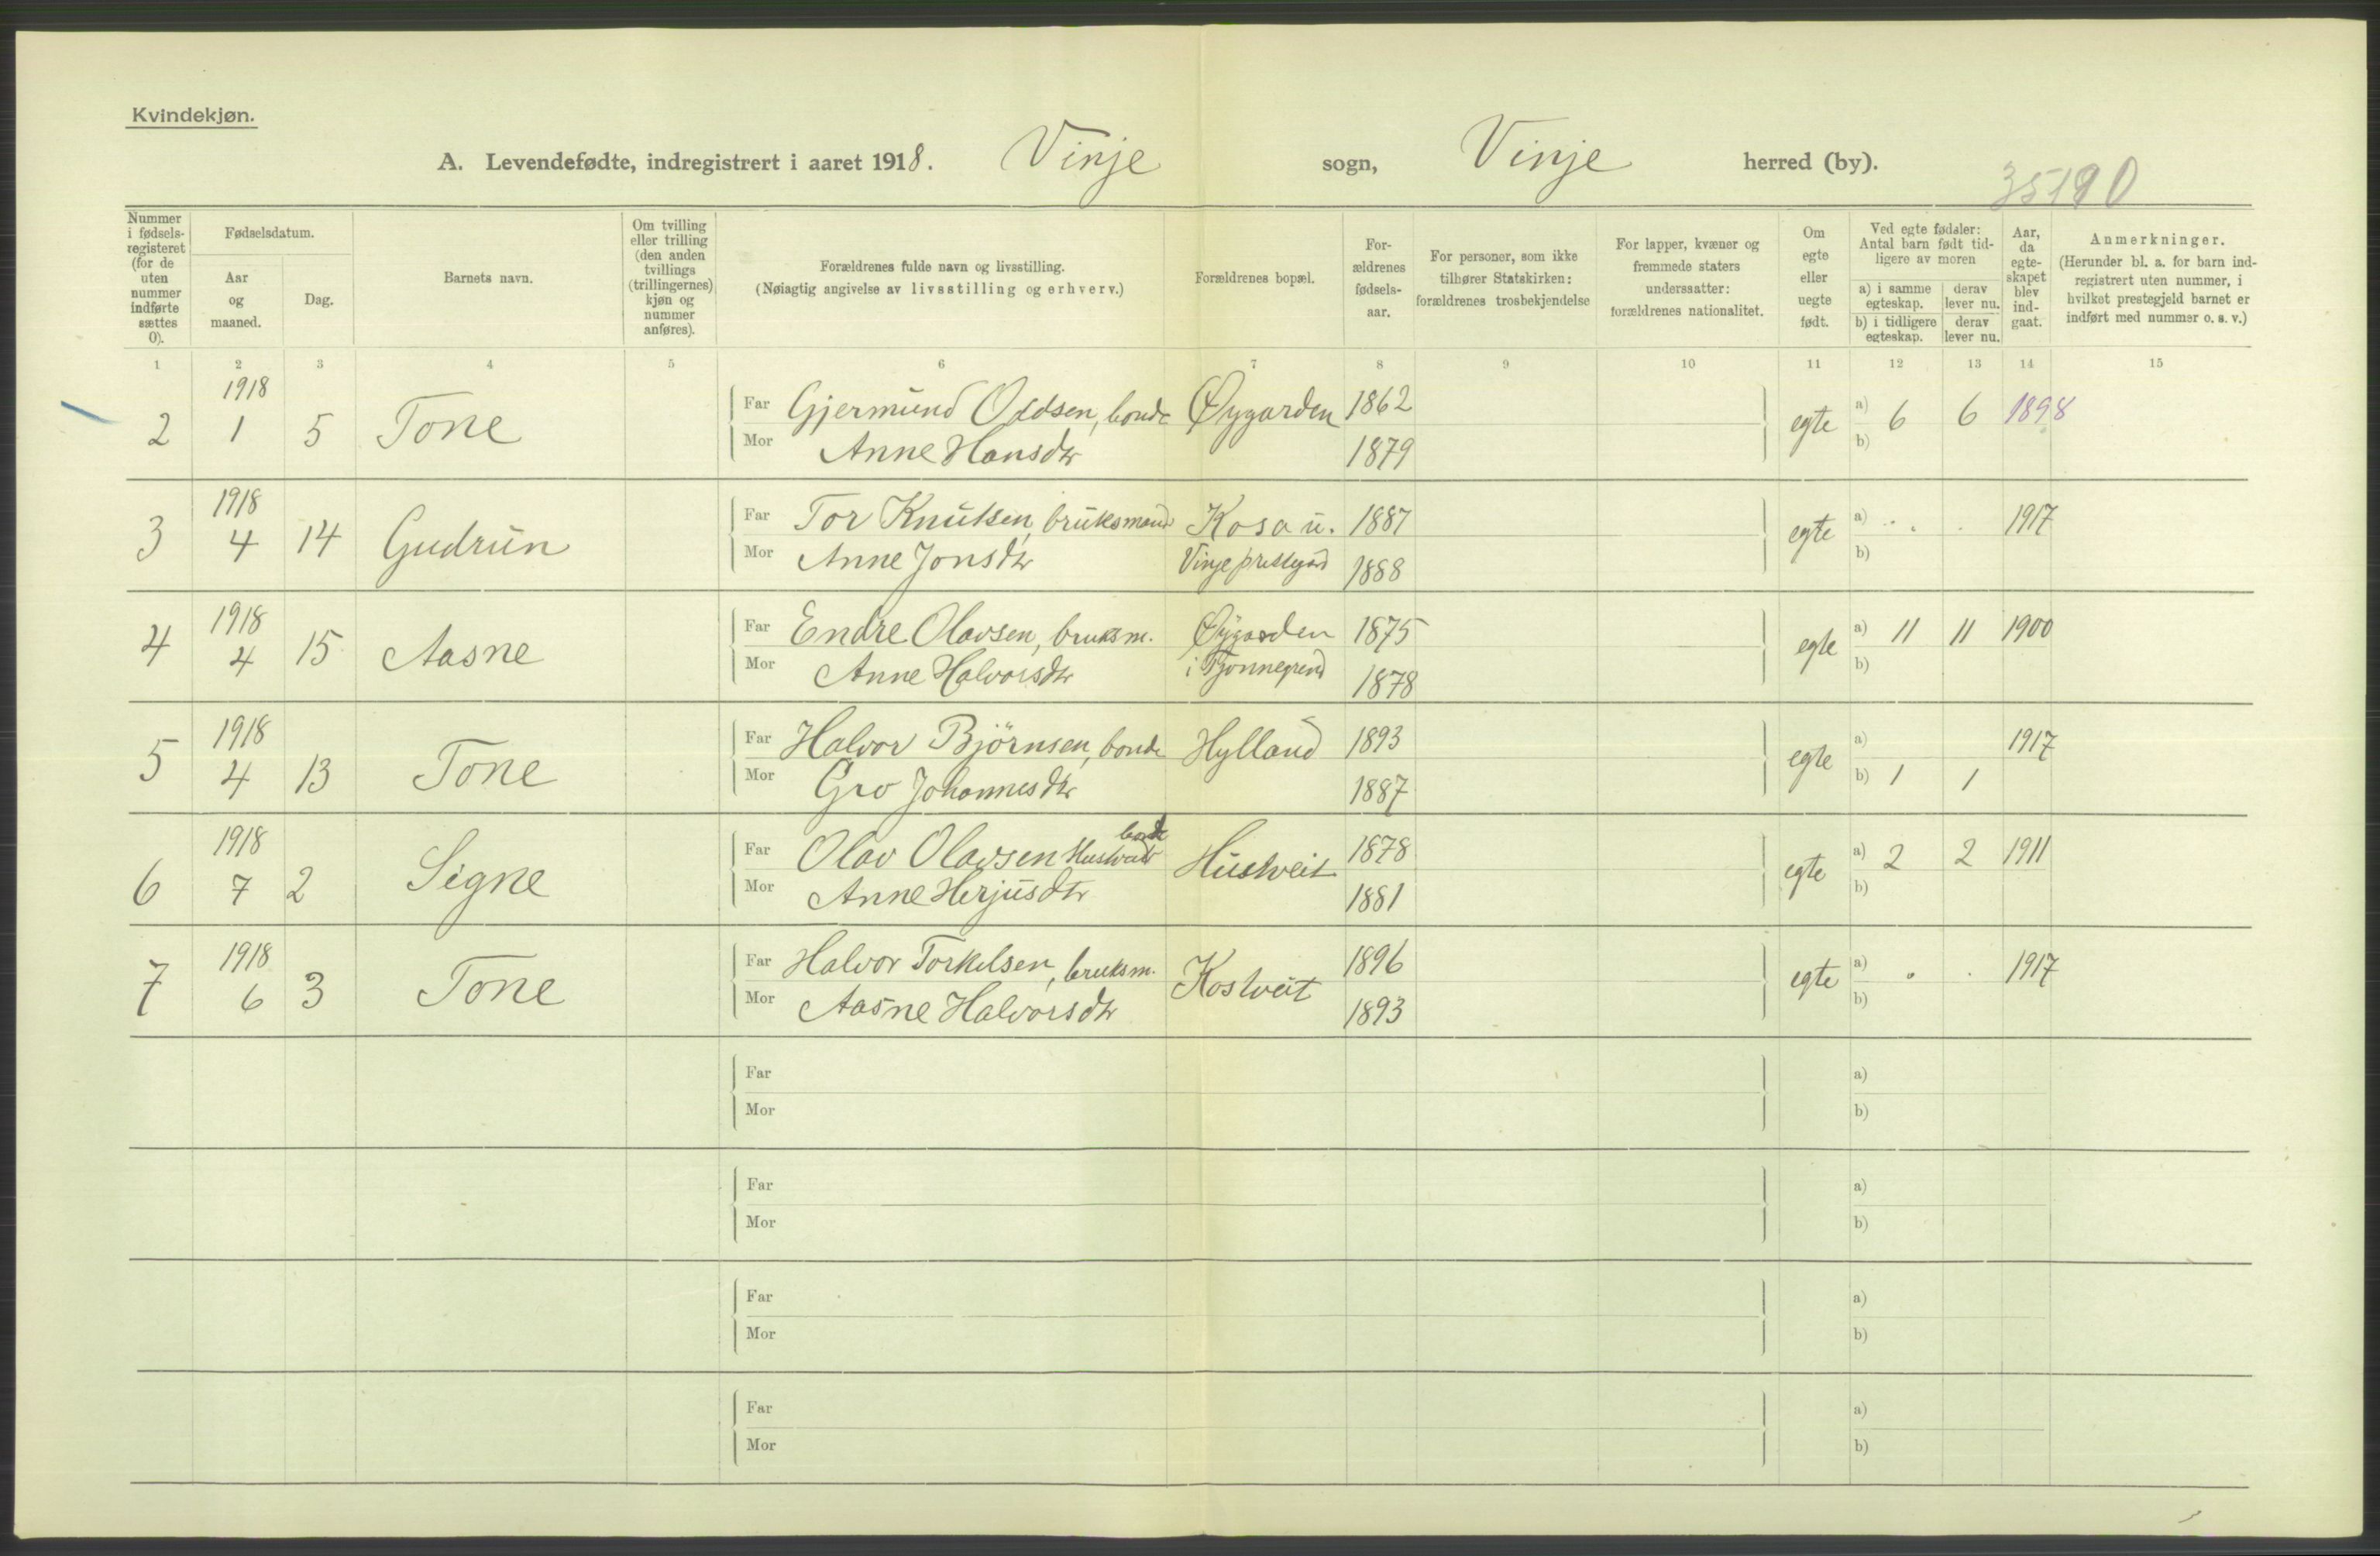 Kvindekjøn.
A. Levendefødte, indregistrert i aaret 1918. Vinje sogn, Vinje herred (by).
35190
Nummer i fødsels-registeret (for de uten nummer indførte sættes 0).
Fødselsdatum.
Aar og maaned.
Dag.
Barnets navn.
Om tvilling eller trilling (den anden tvillings (trillingernes) kjøn og nummer anføres).
Forældrenes fulde navn og livsstilling.
(Nøiagtig angivelse av livsstilling og erhverv.)
Forældrenes bopæl.
For-ældrenes fødsels-aar.
For personer, som ikke tilhører Statskirken: forældrenes trosbekjendelse
For lapper, kvæner og fremmede staters undersaatter: forældrenes nationalitet.
Om egte eller uegte født.
Ved egte fødsler: Antal barn født tid-ligere av moren
a) i samme egteskap.
derav lever nu.
b) i tidligere egteskap.
derav lever nu.
Aar, da egte-skapet blev ind-gaat.
Anmerkninger.
(Herunder bl. a. for barn ind-registrert uten nummer, i hvilket prestegjeld barnet er indført med nummer o. s. v.)
1 2 3 4 5 6 7 8 9 10 11 12 13 14 15
1918
2 1 5 Tone Far Gjermund Oddsen, bonde Øygarden 1862 egte a) 6 6 1898
Mor Anne Hansdtr 1879 b)
1918
3 4 14 Gudrun Far Tor Knutsen, bruksmand Kosa u. 1887 egte a) . . . 1917
Mor Anne Jonsdtr Vinje prestegård 1888 b)
1918
4 4 15 Aasne Far Endre Olavsen, bruksm. Øygarden 1875 egte a) 11 11 1900
Mor Anne Halvorsdtr i Tjønnegrend 1878 b)
1918
5 4 13 Tone Far Halvor Bjørnsen, bonde Hylland 1893 egte a) 1917
Mor Gro Johannesdtr 1887 b) 1 1
1918
6 7 2 Signe Far Olav Olavsen Hustveit bonde Hustveit 1878 egte a) 2 2 1911
Mor Anne Herjusdtr 1881 b)
1918
7 6 3 Tone Far Halvor Torkelsen, bruksm. Kostveit 1896 egte a) . . 1917
Mor Aasne Halvorsdtr 1893 b)
Far a)
Mor b)
Far a)
Mor b)
Far a)
Mor b)
Far a)
Mor b)